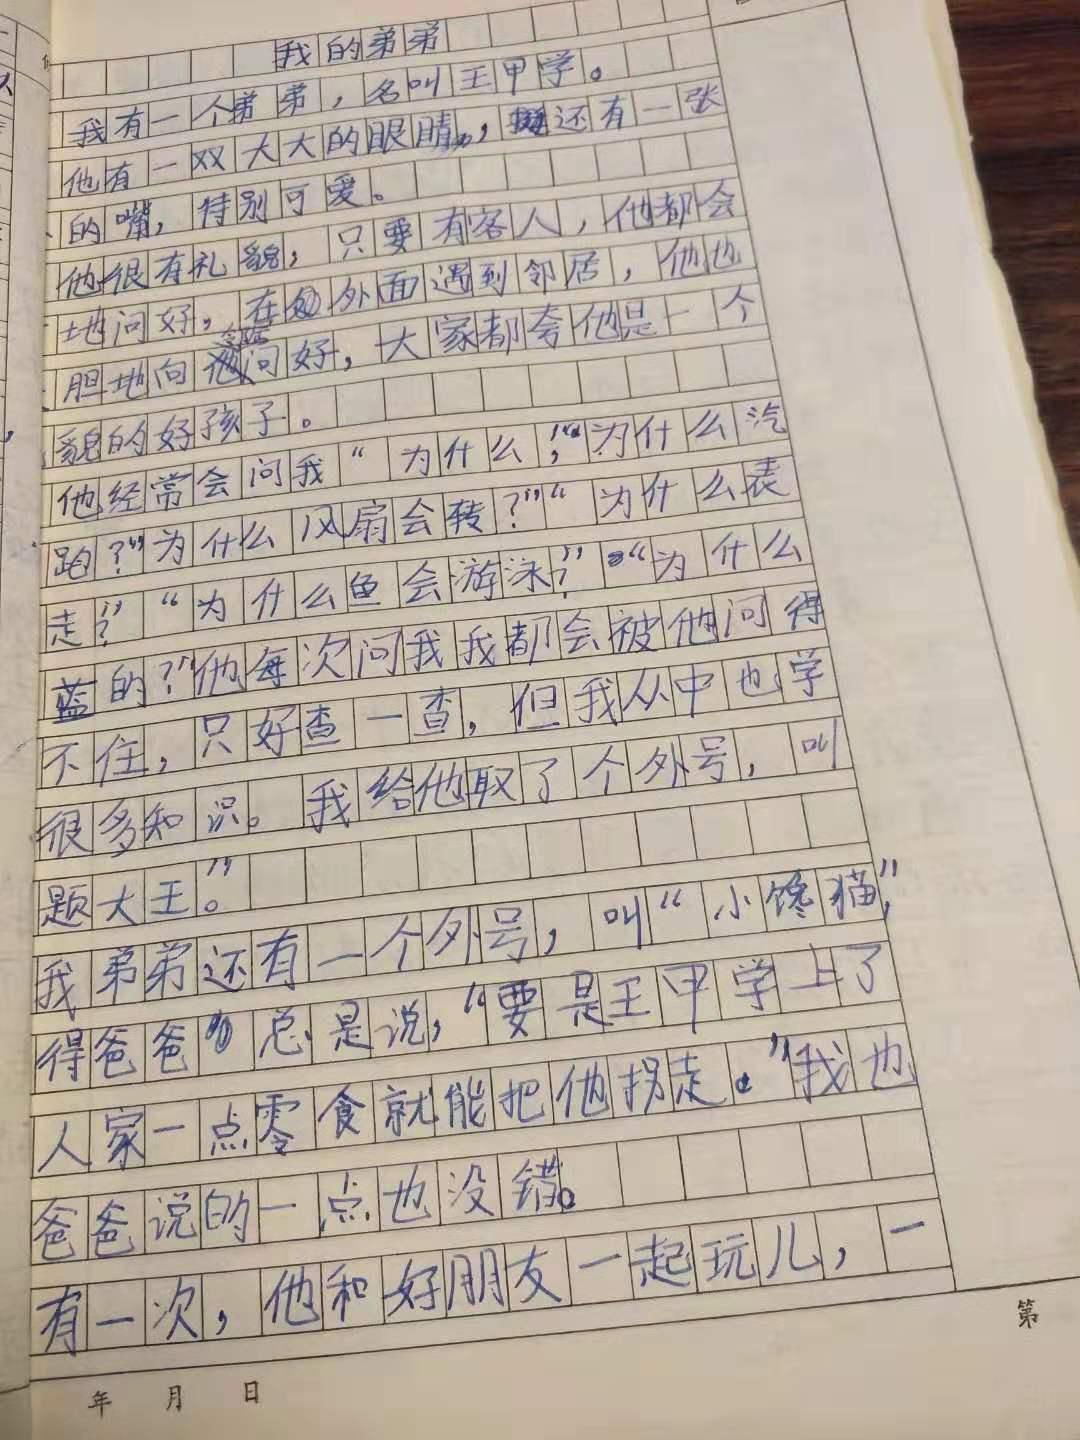 我的弟弟
我有一个弟弟，名叫王甲学。
他有一双大大的眼睛，还有一张
的嘴，特别可爱。
他很有礼貌，只要有客人，他都会
地问好，在外面遇到邻居，他也
胆地向邻居问好，大家都夸他是一个
貌的好孩子。
他经常会问我“为什么，”“为什么汽
跑？”为什么风扇会转？”“为什么表
走？”“为什么鱼会游泳？”“为什么
蓝的？”他每次问我我都会被他问得
不住，只好查一查，但我从中也学
很多知识。我给他取了个外号，叫
题大王。”
我弟弟还有一个外号，叫“小馋猫，”
得爸爸总是说，“要是王甲学上了
人家一点零食就能把他拐走。”我也
爸爸说的一点也没错。
有一次，他和好朋友一起玩儿，一
第
年 月 日